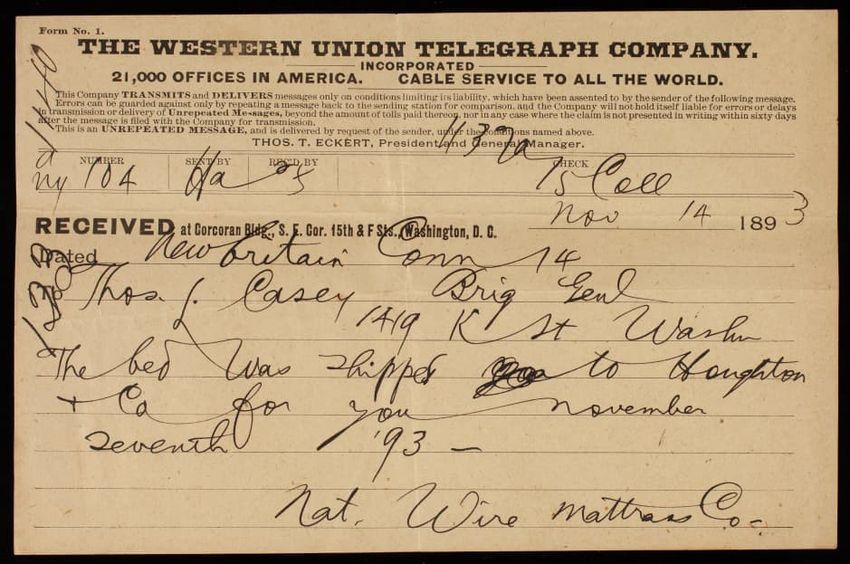 Form No. 1.
THE WESTERN UNION TELEGRAPH COMPANY.
INCORPORATED
21,000 OFFICES IN AMERICA. CABLE SERVICE TO ALL THE WORLD.
This Company TRANSMITS and DELIVERS messages only on conditions limiting its liability, which have been assented to by the sender of the following message.
Errors can be guarded against only by repeating a message back to the sending station for comparison, and the Company will not hold itself liable for errors or delays
in transmission or delivery of Unrepeated Messages, beyond the amount of tolls paid thereon, nor in any case where the claim is not presented in writing within sixty days
after the message is filed with the Company for transmission.
This is an UNREPEATED MESSAGE, and is delivered by request of the sender, under the conditions named above.
THOS. T. ECKERT, President and General Manager.
NUMBER SENT BY REC'D BY CHECK
ny 104 Ha 15 Coll
Nov 14 1893
RECEIVED at Corcoran Bldg., S. E. Cor. 15th & F Sts., Washington, D. C.
Dated New britain Conn 14
To Thos. J. Casey Brig Genl
1419 K St Washn
The bed was shipped to Houghton
+ Co for you november
seventh '93 —
Nat. Wire mattrass Co-